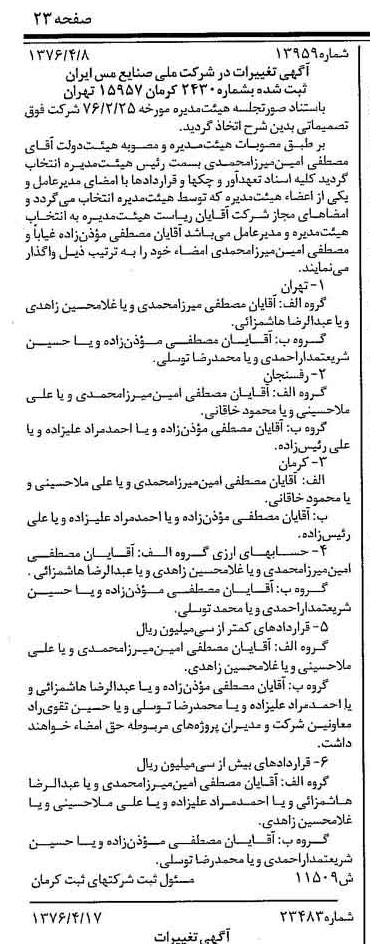 صفحه ۲۳
شماره۱۳۹۵۹ ۱۳۷۶/۴/۸
آگهی تغییرات در شرکت ملی صنایع مس ایران
ثبت شده بشماره ۲۴۳۰ کرمان ۱۵۹۵۷ تهران
باستناد صورتجلسه هیئت‌مدیره مورخه ۷۶/۲/۲۵ شرکت فوق
تصمیماتی بدین شرح اتخاذ گردید.
بر طبق مصوبات هیئت‌مدیره و مصوبه هیئت‌دولت آقای
مصطفی امین‌میرزامحمدی بسمت رئیس هیئت‌مدیره انتخاب
گردید کلیه اسناد تعهدآور و چکها و قراردادها با امضای مدیرعامل و
یکی از اعضاء هیئت‌مدیره که توسط هیئت‌مدیره انتخاب می‌گردد و
امضاهای مجاز شرکت آقایان ریاست هیئت‌مدیره به انتخاب
هیئت‌مدیره و مدیرعامل می‌باشد آقایان مصطفی مؤذن‌زاده غیاباً و
مصطفی امین‌میرزامحمدی امضاء خود را به ترتیب ذیل واگذار
می‌نمایند.
۱- تهران
گروه الف: آقایان مصطفی میرزامحمدی و یا غلامحسین زاهدی
و یا عبدالرضا هاشمزائی.
گروه ب: آقایان مصطفی مؤذن‌زاده و یا حسین
شریعتمداراحمدی و یا محمدرضا توسلی.
۲- رفسنجان
گروه الف: آقایان مصطفی امین‌میرزامحمدی و یا علی
ملاحسینی و یا محمود خاقانی.
گروه ب: آقایان مصطفی مؤذن‌زاده و یا احمدمراد علیزاده و یا
علی رئیس‌زاده.
۳- کرمان
الف: آقایان مصطفی امین‌میرزامحمدی و یا علی ملاحسینی و
یا محمود خاقانی.
ب: آقایان مصطفی مؤذن‌زاده و یا احمدمراد علیزاده و یا علی
رئیس‌زاده.
۴- حسابهای ارزی گروه الف: آقایان مصطفی
امین‌میرزامحمدی و یا غلامحسین زاهدی و یا عبدالرضا هاشمزائی.
گروه ب: آقایان مصطفی مؤذن‌زاده و یا حسین
شریعتمداراحمدی و یا محمد توسلی.
۵- قراردادهای کمتر از سی‌میلیون ریال
گروه الف: آقایان مصطفی امین‌میرزامحمدی و یا علی
ملاحسینی و یا غلامحسین زاهدی.
گروه ب: آقایان مصطفی مؤذن‌زاده و یا عبدالرضا هاشمزائی و
یا احمدمراد علیزاده و یا محمدرضا توسلی و یا حسین تقوی‌راد
معاونین شرکت و مدیران پروژه‌های مربوطه حق امضاء خواهند
داشت.
۶- قراردادهای بیش از سی‌میلیون ریال
گروه الف: آقایان مصطفی امین‌میرزامحمدی و یا عبدالرضا
هاشمزائی و یا احمدمراد علیزاده و یا علی ملاحسینی و یا
غلامحسین زاهدی.
گروه ب: آقایان مصطفی مؤذن‌زاده و یا حسین
شریعتمداراحمدی و یا محمدرضا توسلی.
ش۱۱۵۰۹ مسئول ثبت شرکتهای ثبت کرمان
شماره۲۳۴۸۳ ۱۳۷۶/۴/۱۷
آگهی تغییرات